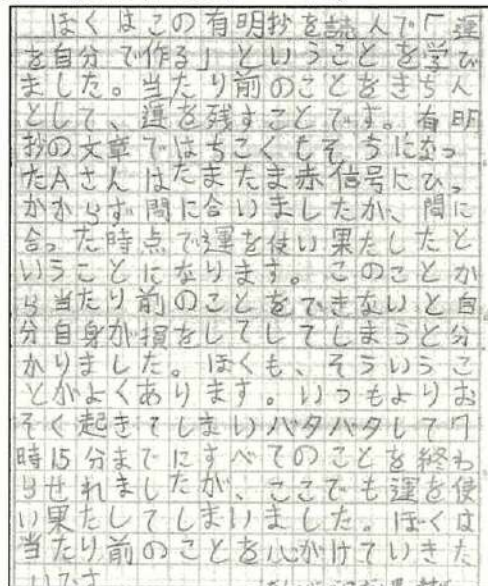 ぼくはこの有明抄を読んで「運
を自分で作る」ということを学び
ました。当たり前のことをきちん
として、運を残すことです。有明
抄の文章ではちこくしそうになっ
たAさんはたまたま赤信号にひっ
かからず間に合いましたが、間に
合った時点で運を使い果たしたと
いうことになります。このことか
ら当たり前のことをできないと自
分自身が損をしてしてしまうと分
かりました。ぼくも、そういうこ
とがよくあります。いつもよりお
そく起きてしまいバタバタして7
時15分までにすべてのことを終わ
らせれましたが、ここでも運を使
い果たしてしまいました。ぼくは
当たり前のことを心がけていきた
いです